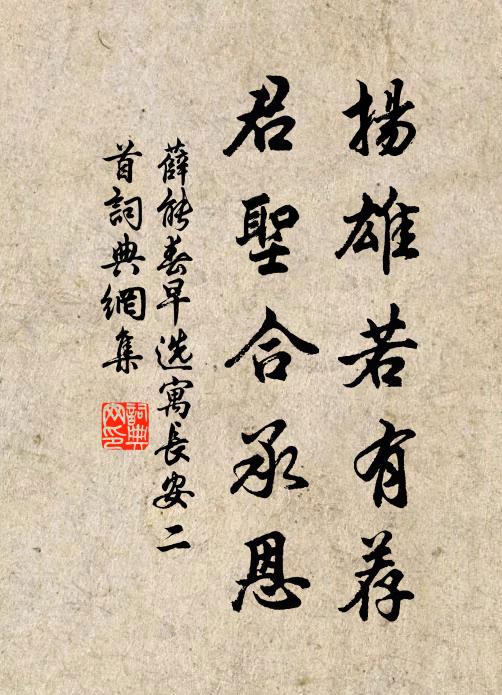 揚雄若有荐
君聖合承恩
薛能春早选寓長安二
首詞典網集
詞典网印